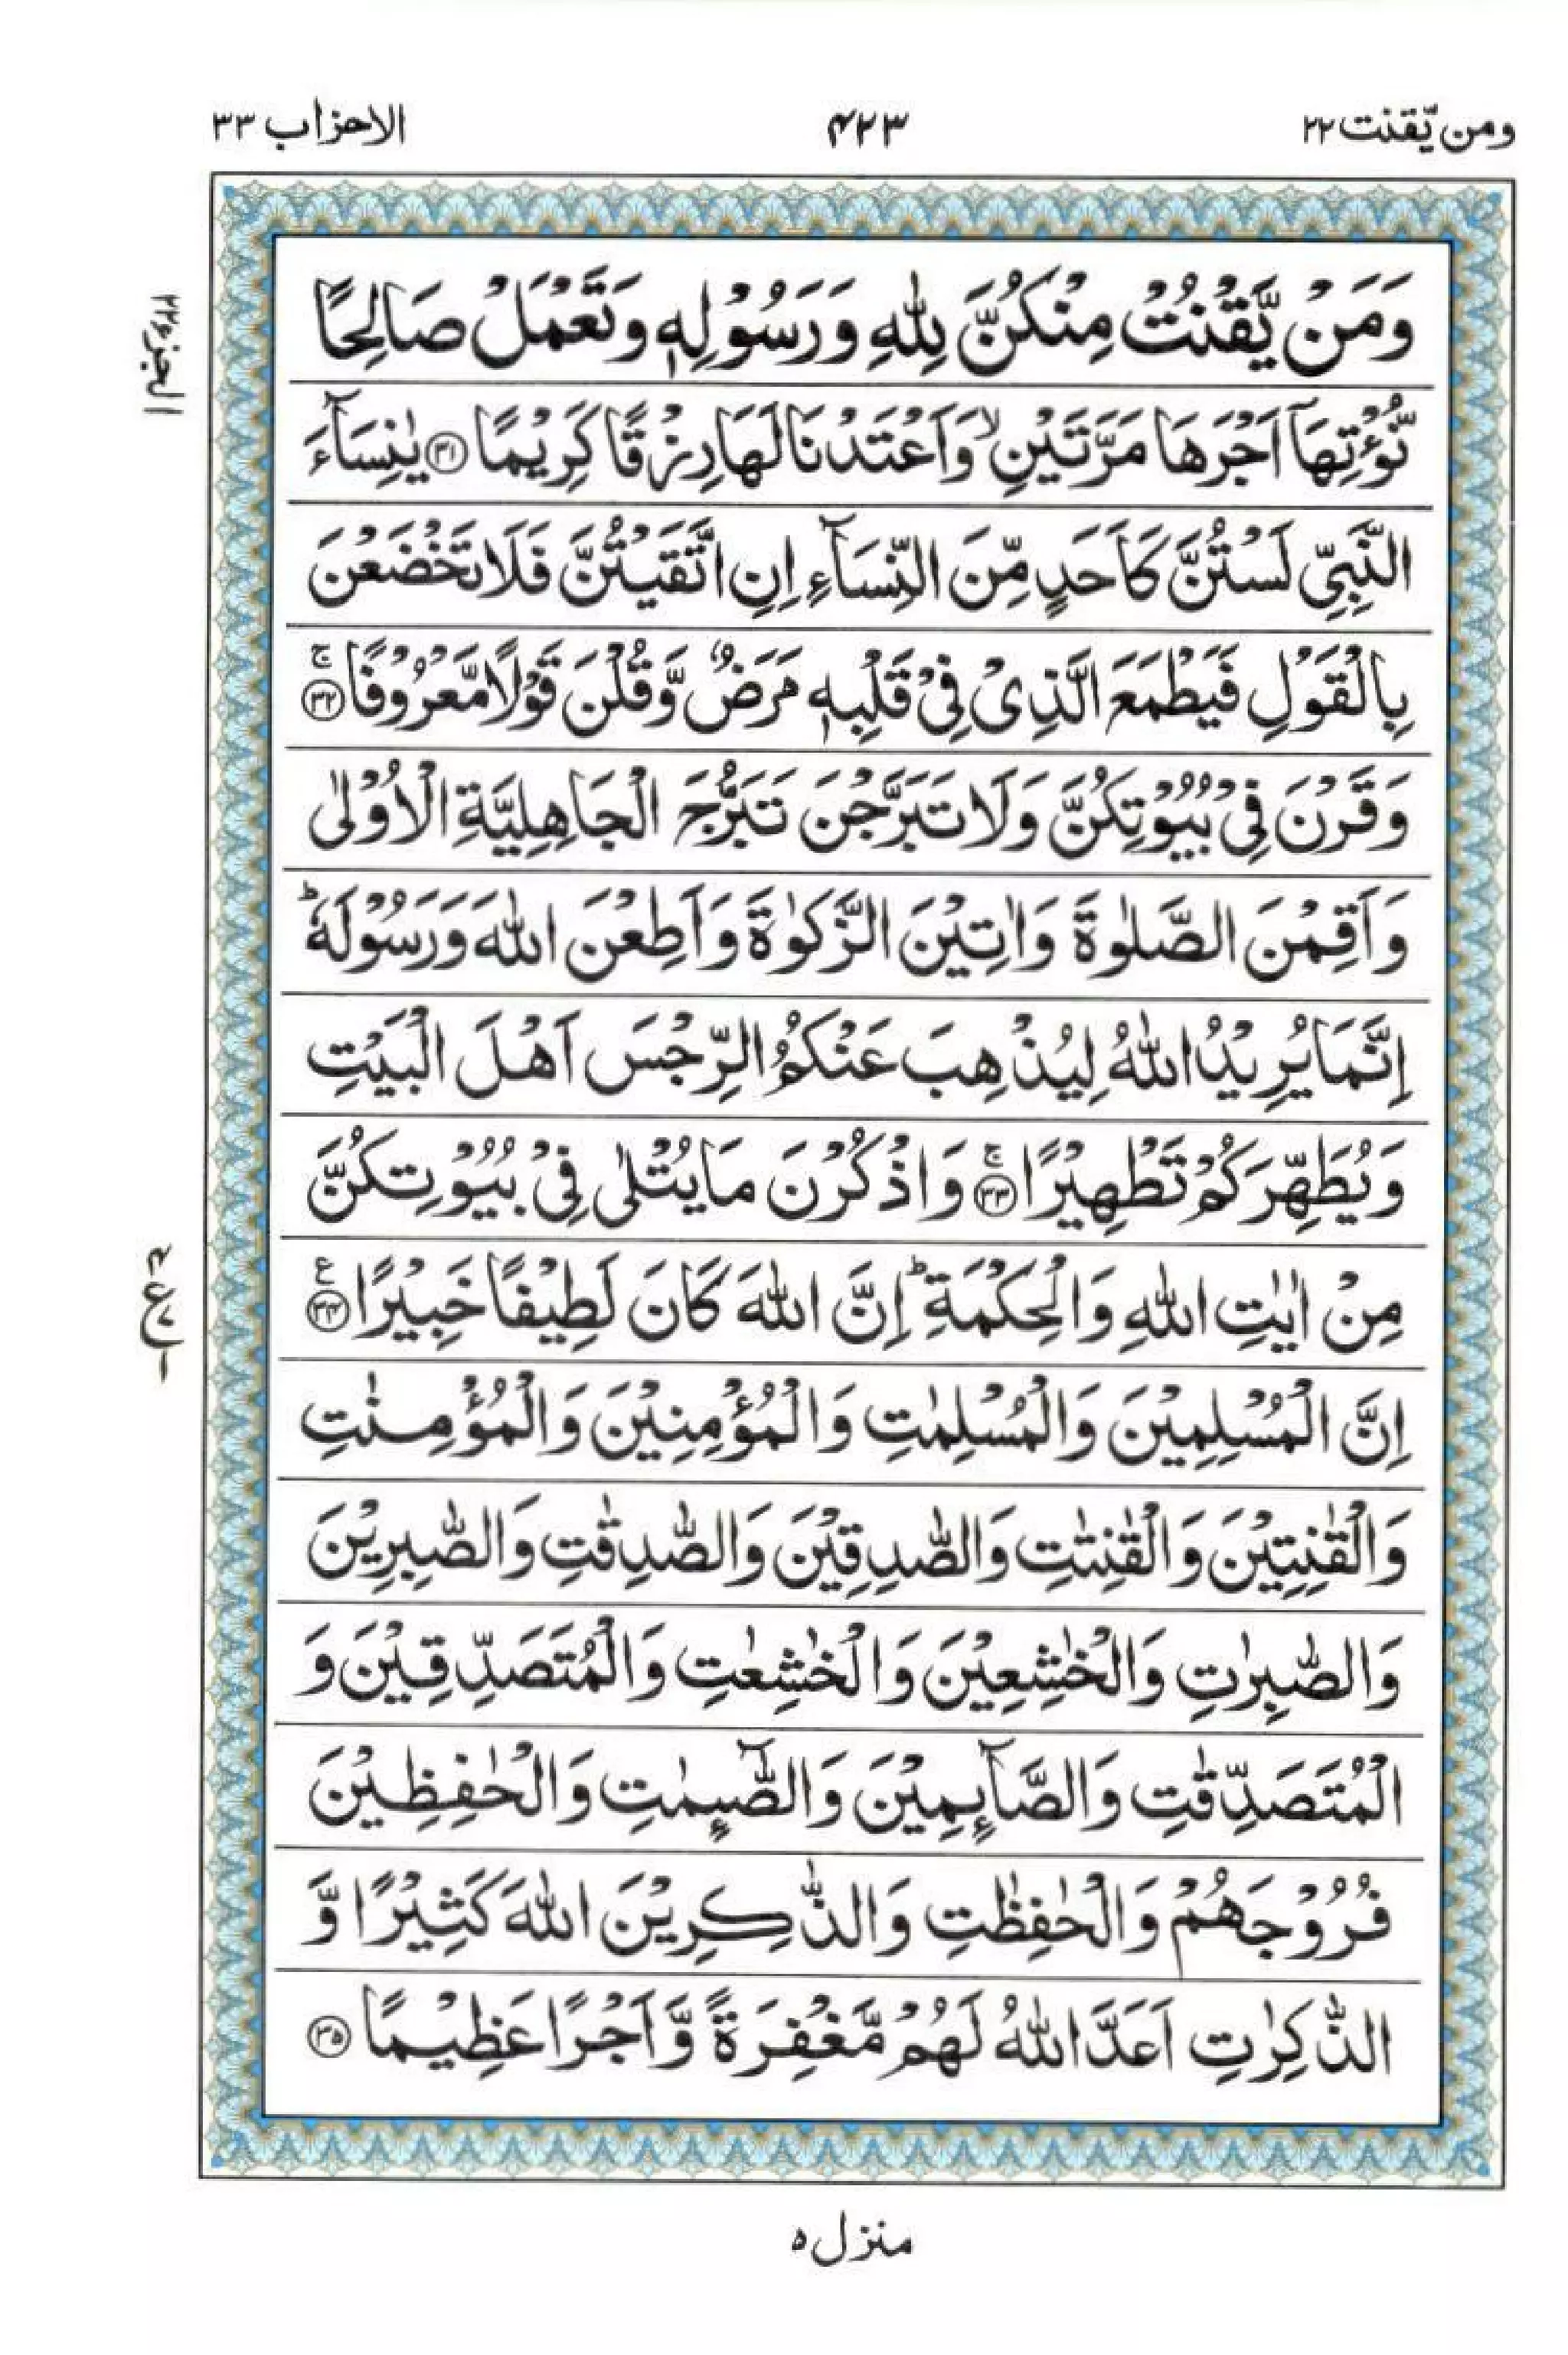 ومن يّقنت ٢٢
٤٢٣
الاحزاب ٣٣
وَمَنْ يَّقْنُتْ مِنْكُنَّ لِلّٰهِ وَرَسُوْلِهٖ وَتَعْمَلْ صَالِحًا
نُّؤْتِهَاۤ اَجْرَهَا مَرَّتَيْنِ ۙ وَاَعْتَدْنَا لَهَا رِزْقًا كَرِيْمًا ﴿٣١﴾ يٰنِسَآءَ
النَّبِيِّ لَسْتُنَّ كَاَحَدٍ مِّنَ النِّسَآءِ اِنِ اتَّقَيْتُنَّ فَلَا تَخْضَعْنَ
بِالْقَوْلِ فَيَطْمَعَ الَّذِىْ فِىْ قَلْبِهٖ مَرَضٌ وَّقُلْنَ قَوْلًا مَّعْرُوْفًا ﴿٣٢﴾ ۚ
وَقَرْنَ فِىْ بُيُوْتِكُنَّ وَلَا تَبَرَّجْنَ تَبَرُّجَ الْجَاهِلِيَّةِ الْاُوْلٰى
وَاَقِمْنَ الصَّلٰوةَ وَاٰتِيْنَ الزَّكٰوةَ وَاَطِعْنَ اللّٰهَ وَرَسُوْلَهٗ ؕ
اِنَّمَا يُرِيْدُ اللّٰهُ لِيُذْهِبَ عَنْكُمُ الرِّجْسَ اَهْلَ الْبَيْتِ
وَيُطَهِّرَكُمْ تَطْهِيْرًا ﴿٣٣﴾ ۚ وَاذْكُرْنَ مَا يُتْلٰى فِىْ بُيُوْتِكُنَّ
مِنْ اٰيٰتِ اللّٰهِ وَالْحِكْمَةِ ؕ اِنَّ اللّٰهَ كَانَ لَطِيْفًا خَبِيْرًا ﴿٣٤﴾ ع
اِنَّ الْمُسْلِمِيْنَ وَالْمُسْلِمٰتِ وَالْمُؤْمِنِيْنَ وَالْمُؤْمِنٰتِ
وَالْقٰنِتِيْنَ وَالْقٰنِتٰتِ وَالصّٰدِقِيْنَ وَالصّٰدِقٰتِ وَالصّٰبِرِيْنَ
وَالصّٰبِرٰتِ وَالْخٰشِعِيْنَ وَالْخٰشِعٰتِ وَالْمُتَصَدِّقِيْنَ وَ
الْمُتَصَدِّقٰتِ وَالصَّآىِٕمِيْنَ وَالصّٰٓىِٕمٰتِ وَالْحٰفِظِيْنَ
فُرُوْجَهُمْ وَالْحٰفِظٰتِ وَالذّٰكِرِيْنَ اللّٰهَ كَثِيْرًا وَّ
الذّٰكِرٰتِ اَعَدَّ اللّٰهُ لَهُمْ مَّغْفِرَةً وَّاَجْرًا عَظِيْمًا ﴿٣٥﴾
منزل ٥
الجزء ٢٢